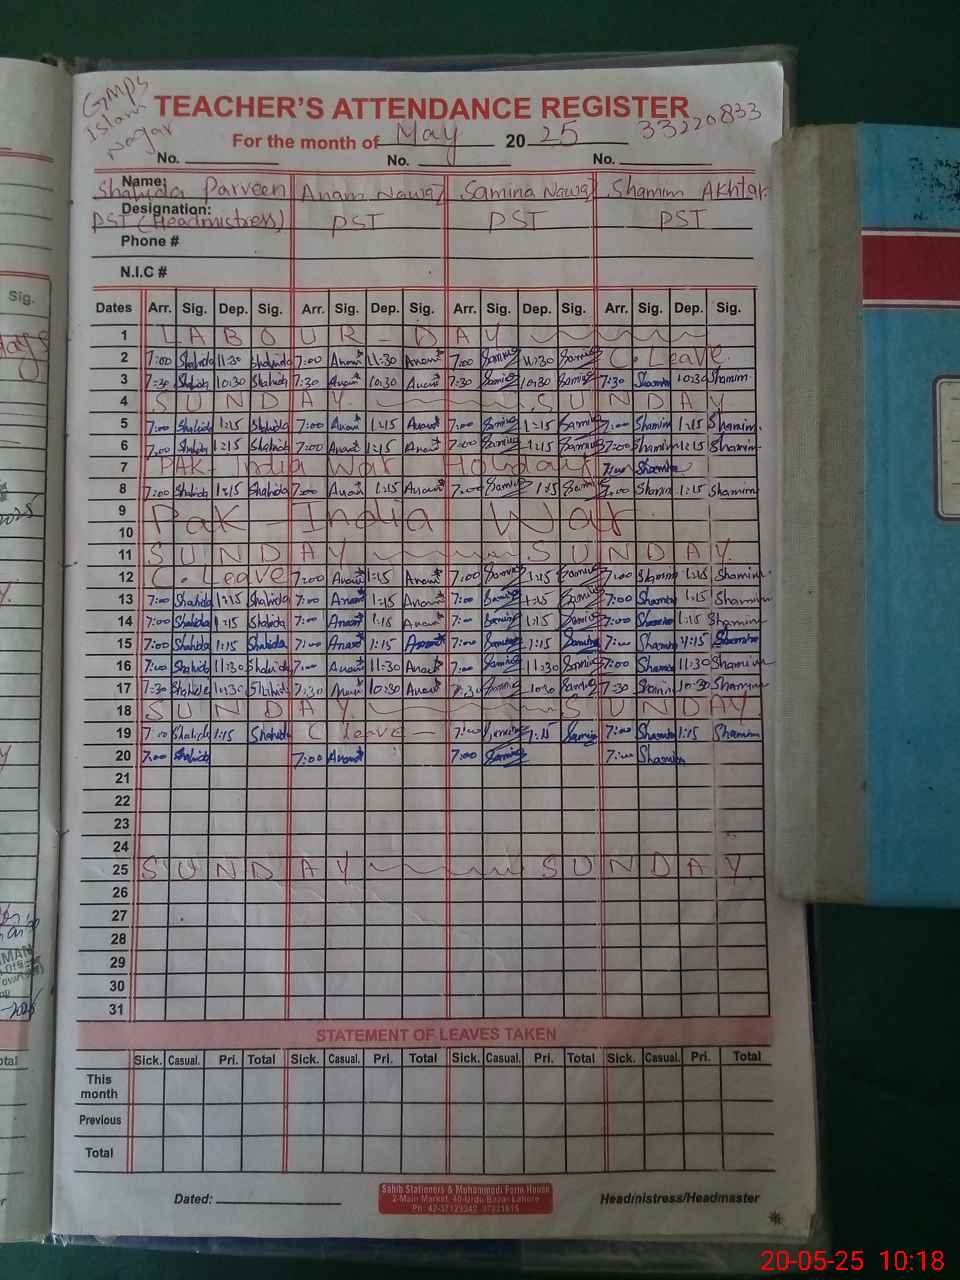 GMPS
Islam
Nagar
TEACHER'S ATTENDANCE REGISTER
33220833
For the month of May 2025
No. No. No.
Name: Shahida Parveen Anam Nawaz Samina Nawaz Shamim Akhtar
Designation: PST (Headmistress) PST PST PST
Phone #
N.I.C #
Dates Arr. Sig. Dep. Sig. Arr. Sig. Dep. Sig. Arr. Sig. Dep. Sig. Arr. Sig. Dep. Sig.
1 LABOUR - DAY
2 7:00 Shahida 11:30 Shahida 7:00 Anam 11:30 Anam 7:00 Samina 11:30 Samina C. Leave
3 7:30 Shahida 10:30 Shahida 7:30 Anam 10:30 Anam 7:30 Samina 10:30 Samina 7:30 Shamim 10:30 Shamim
4 SUNDAY SUNDAY
5 7:00 Shahida 1:15 Shahida 7:00 Anam 1:15 Anam 7:00 Samina 1:15 Samina 7:00 Shamim 1:15 Shamim
6 7:00 Shahida 1:15 Shahida 7:00 Anam 1:15 Anam 7:00 Samina 1:15 Samina 7:00 Shamim 1:15 Shamim
7 PAK- India War Holiday 7:00 Shamim
8 7:00 Shahida 1:15 Shahida 7:00 Anam 1:15 Anam 7:00 Samina 1:15 Samina 7:00 Shamim 1:15 Shamim
9
10 Pak - India War
11 SUNDAY SUNDAY
12 C. Leave 7:00 Anam 1:15 Anam 7:00 Samina 1:15 Samina 7:00 Shamim 1:15 Shamim
13 7:00 Shahida 1:15 Shahida 7:00 Anam 1:15 Anam 7:00 Samina 1:15 Samina 7:00 Shamim 1:15 Shamim
14 7:00 Shahida 1:15 Shahida 7:00 Anam 1:15 Anam 7:00 Samina 1:15 Samina 7:00 Shamim 1:15 Shamim
15 7:00 Shahida 1:15 Shahida 7:00 Anam 1:15 Anam 7:00 Samina 1:15 Samina 7:00 Shamim 1:15 Shamim
16 7:00 Shahida 11:30 Shahida 7:00 Anam 11:30 Anam 7:00 Samina 11:30 Samina 7:00 Shamim 11:30 Shamim
17 7:30 Shahida 10:30 Shahida 7:30 Anam 10:30 Anam 7:30 Samina 10:30 Samina 7:30 Shamim 10:30 Shamim
18 SUNDAY SUNDAY
19 7:00 Shahida 1:15 Shahida C leave - 7:00 Samina 1:15 Samina 7:00 Shamim 1:15 Shamim
20 7:00 Shahida 7:00 Anam 7:00 Samina 7:00 Shamim
21
22
23
24
25 SUNDAY SUNDAY
26
27
28
29
30
31
STATEMENT OF LEAVES TAKEN
Sick. Casual. Pri. Total Sick. Casual. Pri. Total Sick. Casual. Pri. Total Sick. Casual. Pri. Total
This month
Previous
Total
Dated: Headmistress/Headmaster
Sahib Stationers & Mohammadi Form House
2-Main Market, 40-Urdu Bazar Lahore
20-05-25 10:18